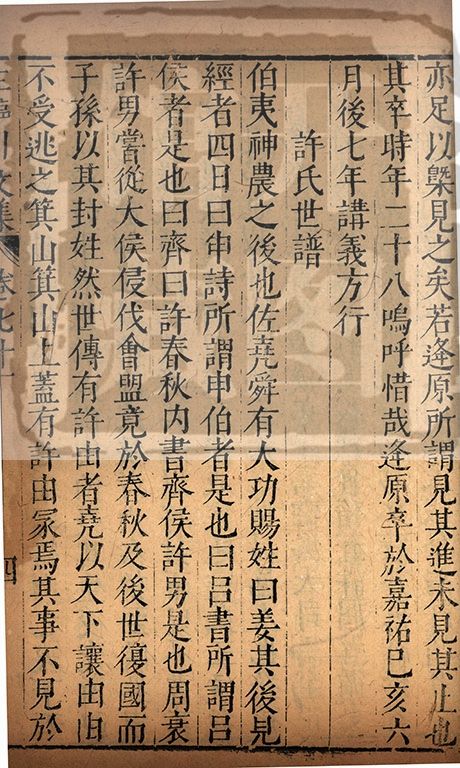 亦足以槩見之矣若逢原所謂見其進未見其止也
其卒時年二十八嗚呼惜哉逢原卒於嘉祐巳亥六
月後七年講義方行
許氏世譜
伯夷神農之後也佐堯舜有大功賜姓曰姜其後見
經者四曰曰申詩所謂申伯者是也曰吕書所謂吕
侯者是也曰齊曰許春秋内書齊侯許男是也周衰
許男嘗從大侯侵伐會盟竟於春秋及後世復國而
子孫以其封姓然世傳有許由者堯以天下讓由由
不受逃之箕山箕山上蓋有許由冢焉其事不見於
王臨川文集 卷七十一 四